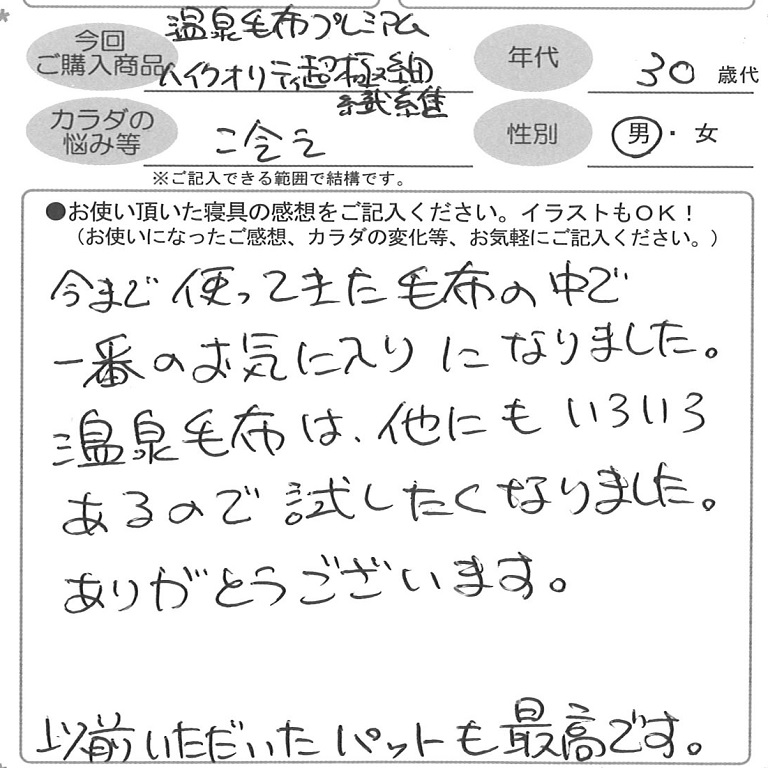 今回
ご購入商品
温泉毛布プレミアム
ハイクオリティ超極細
繊維
年代
30歳代
カラダの
悩み等
こ会え
性別
男・女
※ご記入できる範囲で結構です。
●お使い頂いた寝具の感想をご記入ください。イラストもOK!
(お使いになったご感想、カラダの変化等、お気軽にご記入ください。)
今まで使ってきた毛布の中で
一番のお気に入りになりました。
温泉毛布は、他にもいろいろ
あるので試したくなりました。
ありがとうございます。
以前いただいたパットも最高です。